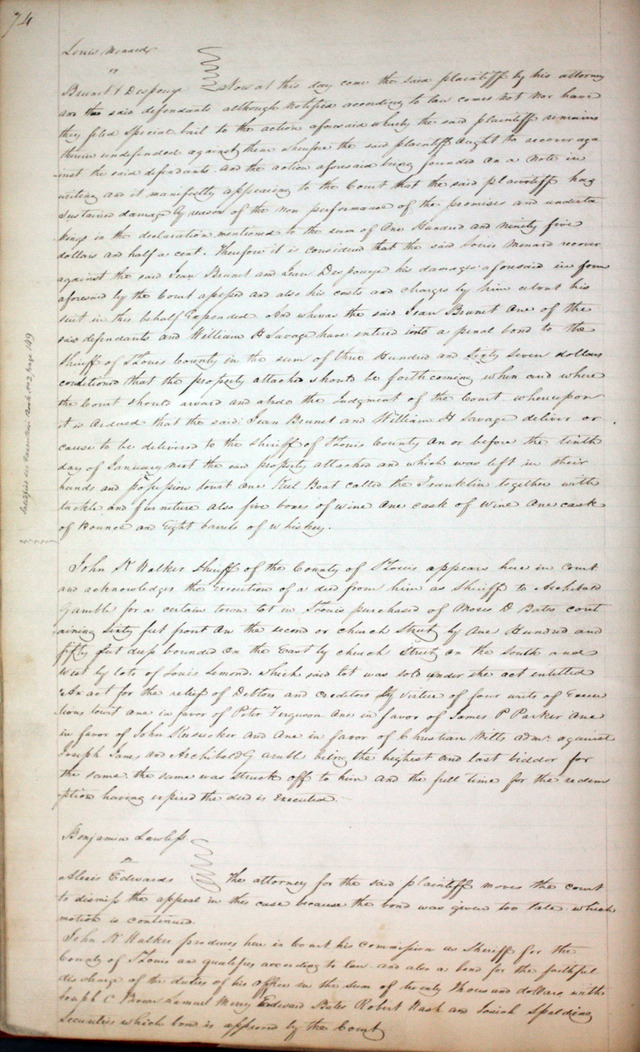 74
Louis Menard
vs
Brunet & Despouye Now at this day come the said plaintiff by his attorney
and the said defendants although notified according to law comes not nor have
they filed Special bail to the action aforesaid whereby the said plaintiff remains
therein undefended against them therefore the said plaintiff ought to recover aga
inst the said defendants and the action aforesaid being founded on a Note in
writing and it manifestly appearing to the Court that the said plaintiff has
Sustained damage by reason of the non performance of the promises and underta
kings in the declaration mentioned to the sum of One Hundred and ninety five
dollars and half a cent. Therefore it is considered that the said Louis Menard recover
against the said Jean Brunet and Jean Despouye his damages aforesaid in form
aforesaid by the Court assessed and also his costs and charges by him about his
suit in this behalf Expended And whereas the said Jean Brunet One of the
said defendants and William H Savage have entered into a penal bond to the
Sheriff of St Louis County in the sum of Hundred and Sixty Seven dollars
conditioned that the property attached should be forthcoming when and where
the Court should award and abide the Judgment of the Court whereupon
it is Ordered that the said Jean Brunet and William H Savage deliver or
cause to be delivered to the Sheriff of St Louis County on or before the tenth
day of January next the said property attached and which was left in their
hands and possession towit One Keel Boat called the Franklin together with
tackle and furniture also five boxes of wine One cask of wine One cask
of Bounce and Eight barrels of whiskey.
Satisfied see Execution Book No 2 page 189
John K Walker Sheriff of the County of St Louis appears here in court
and acknowledges the Execution of a deed from him as Sheriff to Archibald
Gamble for a certain town lot in St Louis purchased of Moses D Bates cont
aining Sixty feet front on the second or church Street by One Hundred and
fifty feet deep bounded On the East by church Street on the South and
West by lots of Louis Lemond which said lot was sold under the act intitled
An act for the relief of Debtors and creditors by virtue of four writs of Execu
tions towit one in favor of Peter Ferguson One in favor of James P Parker One
in favor of John and One in favor of Christian Wilt's admr. against
Joseph Jones and Archibald Gamble being the highest and last bidder for
the same, the same was struck off to him and the full time for the redem
ption having expired the deed is Executed.
Benjamin Lawless
vs
Alexis Edwards The attorney for the said plaintiff moves the court
to dismiss the appeal in this case because the bond was given too late which
motion is continued.
John K Walker produces here in Court his Commission as Sheriff for the
County of St Louis and qualifies according to law and also a bond for the faithful
discharge of the duties of his office in the sum of twenty thousand dollars with
Joseph C Brown Samuel Merry Edward Bates Robert Wash and Josiah Spalding
Securities which bond is approved by the Court